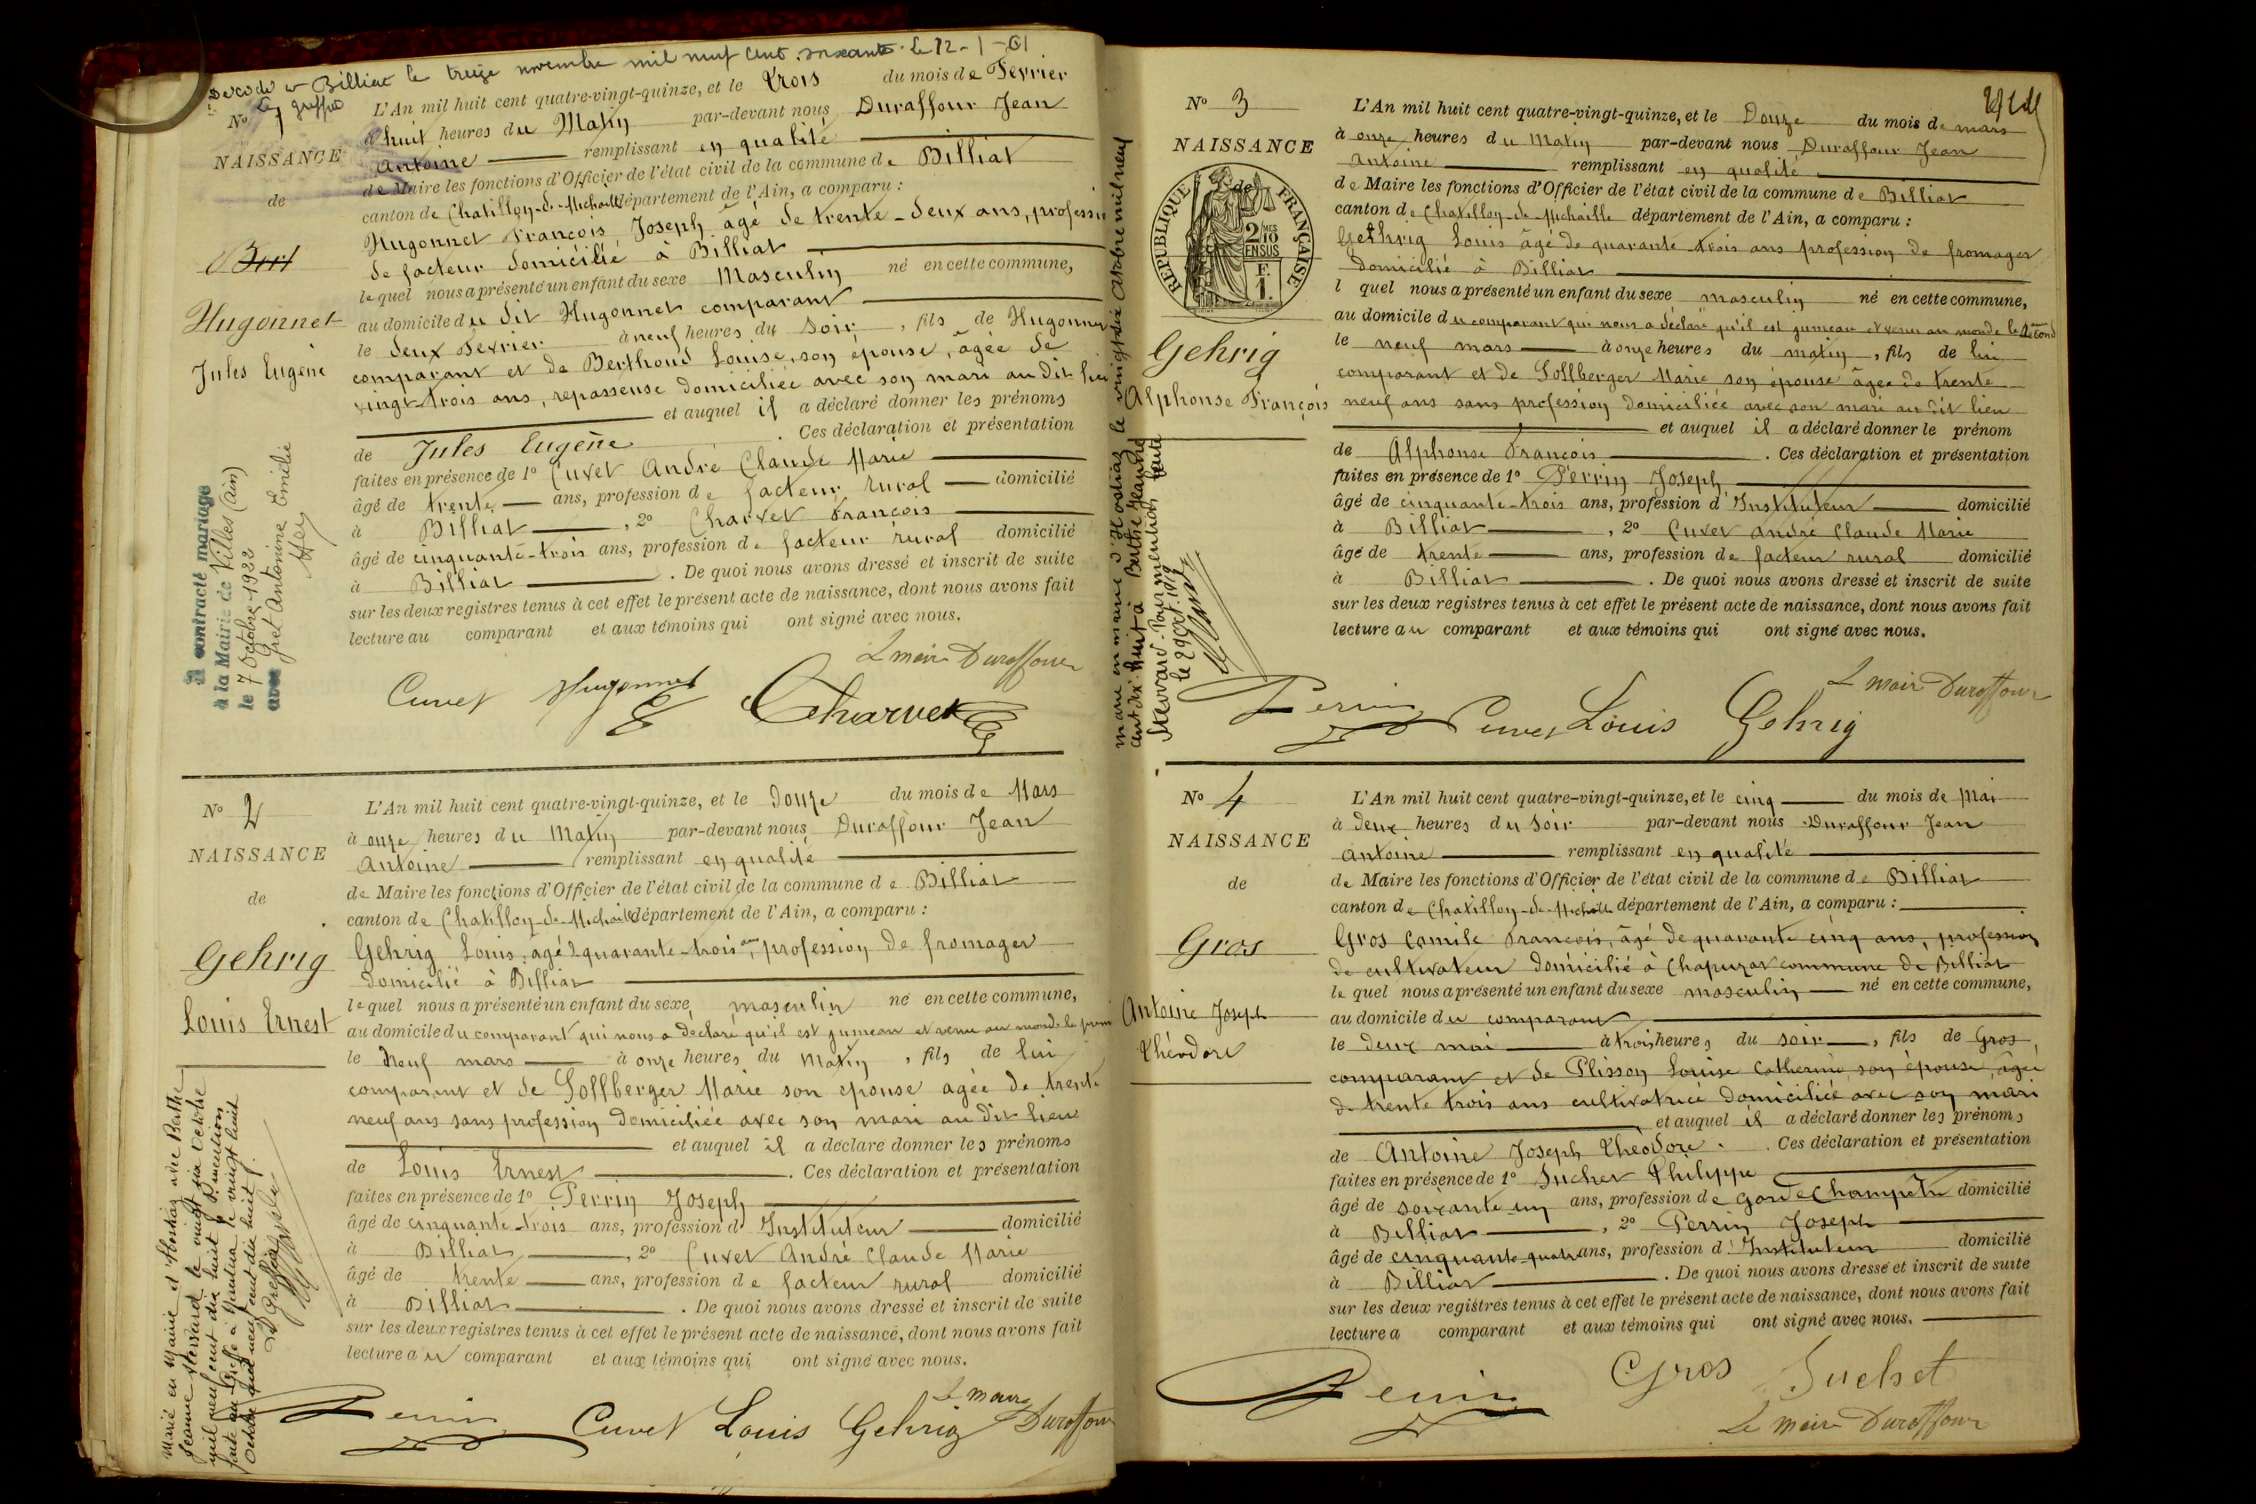 Décédé à Billiat le treize novembre mil neuf cent soixante. Le 12-1-61
Le greffier
No 1
NAISSANCE
de
Hugonnet
Jules Eugène
L'An mil huit cent quatre-vingt-quinze, et le trois du mois de Fevrier
à huit heures du Matin par-devant nous Duraffour Jean
Antoine remplissant en qualité
de Maire les fonctions d'Officier de l'état civil de la commune de Billiat
canton de Chatillon-de-Michaille département de l'Ain, a comparu :
Hugonnet François Joseph âgé de trente-deux ans, profession
de facteur domicilié à Billiat
lequel nous a présenté un enfant du sexe Masculin né en cette commune,
au domicile du dit Hugonnet comparant
le deux Fevrier à neuf heures du soir, fils de Hugonnet
comparant et de Berthoud Louise, son épouse, âgée de
vingt-trois ans, repasseuse domiciliée avec son mari au dit lieu
et auquel il a déclaré donner les prénoms
de Jules Eugène. Ces déclaration et présentation
faites en présence de 1o Cuvet André Claude Marie
âgé de trente ans, profession de facteur rural domicilié
à Billiat, 2o Charvet François
âgé de cinquante-trois ans, profession de facteur rural domicilié
à Billiat. De quoi nous avons dressé et inscrit de suite
sur les deux registres tenus à cet effet le présent acte de naissance, dont nous avons fait
lecture au comparant et aux témoins qui ont signé avec nous.
Le maire Duraffour
Cuvet Hugonnet Charvet
a contracté mariage
à la Mairie de Villes (Ain)
le 7 Octobre 1922
avec Gret Antonine Emélie
No 2
NAISSANCE
de
Gehrig
Louis Ernest
L'An mil huit cent quatre-vingt-quinze, et le Douze du mois de Mars
à onze heures du Matin par-devant nous Duraffour Jean
Antoine remplissant en qualité
de Maire les fonctions d'Officier de l'état civil de la commune de Billiat
canton de Chatillon-de-Michaille département de l'Ain, a comparu :
Gehrig Louis, agé 2quarante-trois ans, profession de fromager
domicilié à Billiat
lequel nous a présenté un enfant du sexe masculin né en cette commune,
au domicile du comparant qui nous a déclaré qu'il est jumeau et venu au monde le premi
le neuf mars à onze heures du matin, fils de lui
comparant et de Sollberger Marie son épouse agée de trente
neuf ans sans profession domiciliée avec son mari au dit lieu
et auquel il a déclaré donner les prénoms
de Louis Ernest. Ces déclaration et présentation
faites en présence de 1o Perrin Joseph
âgé de cinquante-trois ans, profession d'Instituteur domicilié
à Billiat, 2o Cuvet André Claude Marie
âgé de trente ans, profession de facteur rural domicilié
à Billiat. De quoi nous avons dressé et inscrit de suite
sur les deux registres tenus à cet effet le présent acte de naissance, dont nous avons fait
lecture au comparant et aux témoins qui ont signé avec nous.
Le maire
Perrin Cuvet Louis Gehrig Duraffour
Marié en Mairie d'Hostiaz avec Berthe
Jeanne Stervard le vingt six Octobre
mil neuf cent dix huit P. mention
faite au Greffe à Nantua le vingt huit
Octobre mil neuf cent dix huit.
Le Greffier
No 3
NAISSANCE
de
RÉPUBLIQUE FRANÇAISE
2/10 EN SUS
F.
1.
Gehrig
Alphonse François
L'An mil huit cent quatre-vingt-quinze, et le Douze du mois de mars
à onze heures du Matin par-devant nous Duraffour Jean
Antoine remplissant en qualité
de Maire les fonctions d'Officier de l'état civil de la commune de Billiat
canton de Chatillon-de-Michaille département de l'Ain, a comparu :
Gethrig Louis âgé de quarante trois ans profession de fromager
domicilié à Billiat
l quel nous a présenté un enfant du sexe masculin né en cette commune,
au domicile du comparant qui nous a déclaré qu'il est jumeau et venu au monde le second
le neuf mars à onze heures du matin, fils de lui
comparant et de Sollberger Marie son épouse âgée de trente
neuf ans sans profession domiciliée avec son mari au dit lieu
et auquel il a déclaré donner le prénom
de Alphonse François. Ces déclaration et présentation
faites en présence de 1o Perrin Joseph
âgé de cinquante-trois ans, profession d'Instituteur domicilié
à Billiat, 2o Cuvet André Claude Marie
âgé de trente ans, profession de facteur rural domicilié
à Billiat. De quoi nous avons dressé et inscrit de suite
sur les deux registres tenus à cet effet le présent acte de naissance, dont nous avons fait
lecture au comparant et aux témoins qui ont signé avec nous.
Le maire Duraffour
Perrin Cuvet Louis Gehrig
Marié en mairie d'Hostiaz le vingt six Octobre mil neuf
cent dix-huit à Berthe Jeanne
Stervard. Pour mention faite
le 29 Oct. 1918
No 4
NAISSANCE
de
Gros
Antoine Joseph
Théodore
L'An mil huit cent quatre-vingt-quinze, et le cinq du mois de Mai
à deux heures du Soir par-devant nous Duraffour Jean
Antoine remplissant en qualité
de Maire les fonctions d'Officier de l'état civil de la commune de Billiat
canton de Chatillon-de-Michaille département de l'Ain, a comparu :
Gros Camile François, âgé de quarante cinq ans, profession
de cultivateur domicilié à Chapuzat commune de Billiat
lequel nous a présenté un enfant du sexe masculin né en cette commune,
au domicile du comparant
le deux mai à trois heures du soir, fils de Gros
comparant et de Plisson Louise Catherine, son épouse, âgée
de trente trois ans cultivatrice domiciliée avec son mari
et auquel il a déclaré donner les prénoms
de Antoine Joseph Théodore. Ces déclaration et présentation
faites en présence de 1o Suchet Philippe
âgé de soixante un ans, profession de garde Champêtre domicilié
à Billiat, 2o Perrin Joseph
âgé de cinquante quatre ans, profession d'Instituteur domicilié
à Billiat. De quoi nous avons dressé et inscrit de suite
sur les deux registres tenus à cet effet le présent acte de naissance, dont nous avons fait
lecture a comparant et aux témoins qui ont signé avec nous.
Perrin Gros Suchet
Le maire Duraffour